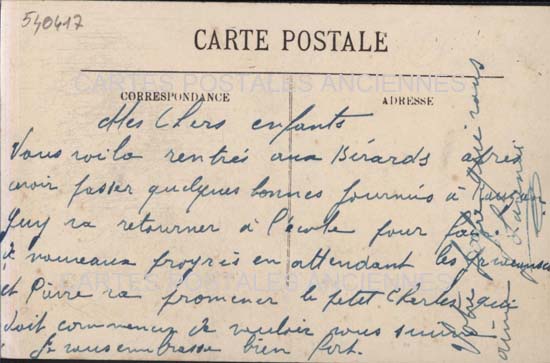 540417
CARTE POSTALE
CARTES POSTALES ANCIENNES
CORRESPONDANCE
ADRESSE
Mes Chers enfants
Vous voila rentrés aux Bérards après
avoir passer quelques bonnes journées à
Guy va retourner à l'école pour faire
de nouveaux progrès en attendant les
CARTES POSTALES ANCIENNES
et Pierre va promener le petit Charles qui
doit commencer de vouloir vous suivre
Je vous embrasse bien fort.
Votre qui vous
aime